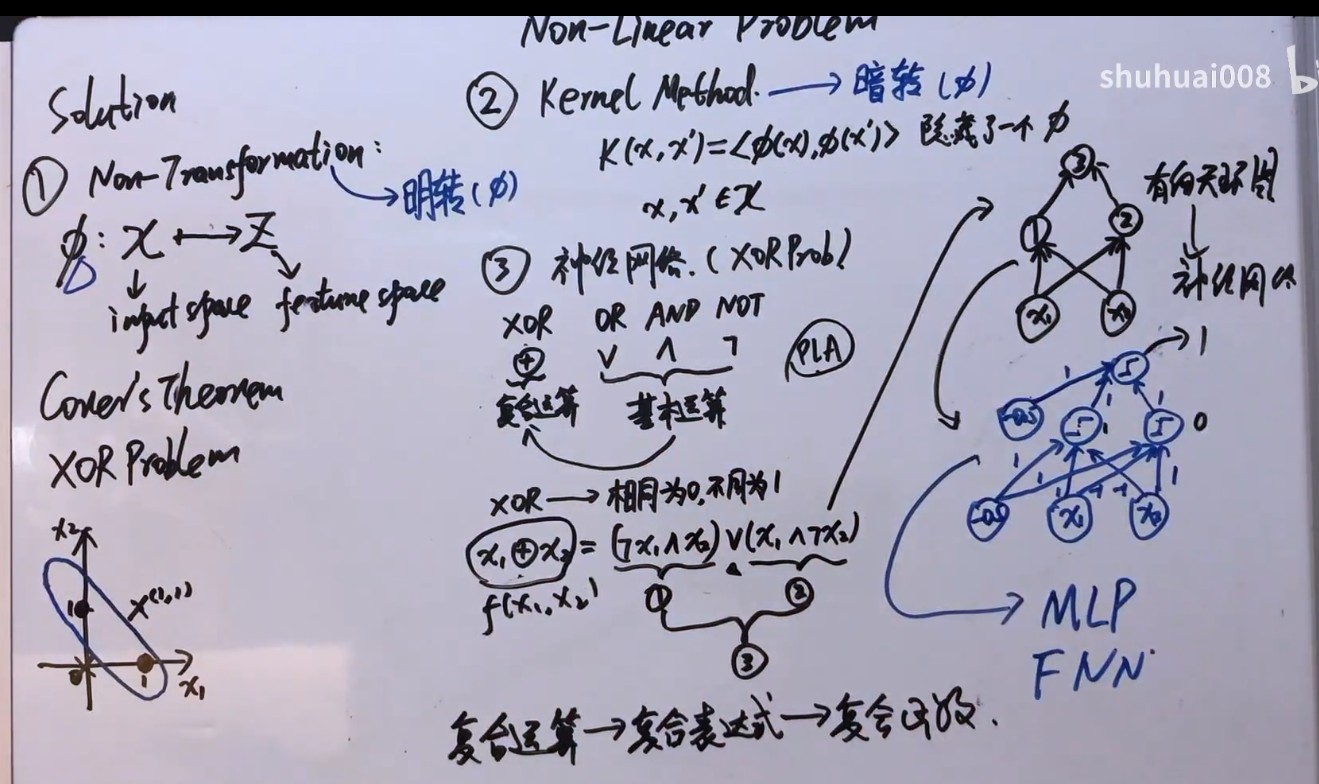 Non-Linear Problem
shuhuai008
Solution
① Non-Transformation:
明转(φ)
φ: X ⟼ Z
input space feature space
Cover's Theorem
XOR Problem
x₂
1
x(1,1)
0
1
x₁
② Kernel Method. → 暗转(φ)
K(x,x′)=<φ(x),φ(x′)> 隐藏了一个φ
x,x′∈X
③ 神经网络.(XOR Prob)
XOR OR AND NOT
⊕ ∨ ∧ ¬
PLA
复合运算 基本运算
XOR → 相同为0,不同为1
x₁⊕x₂ = (¬x₁∧x₂)∨(x₁∧¬x₂)
f(x₁,x₂)
① ②
③
复合运算→复合表达式→复合函数.
③
① ②
x₁ x₂
有向无环图
神经网络
1
1
-0.5 1 1
1 0
1 1 -1 -1 1
-0.5 x₁ x₂
MLP
FNN